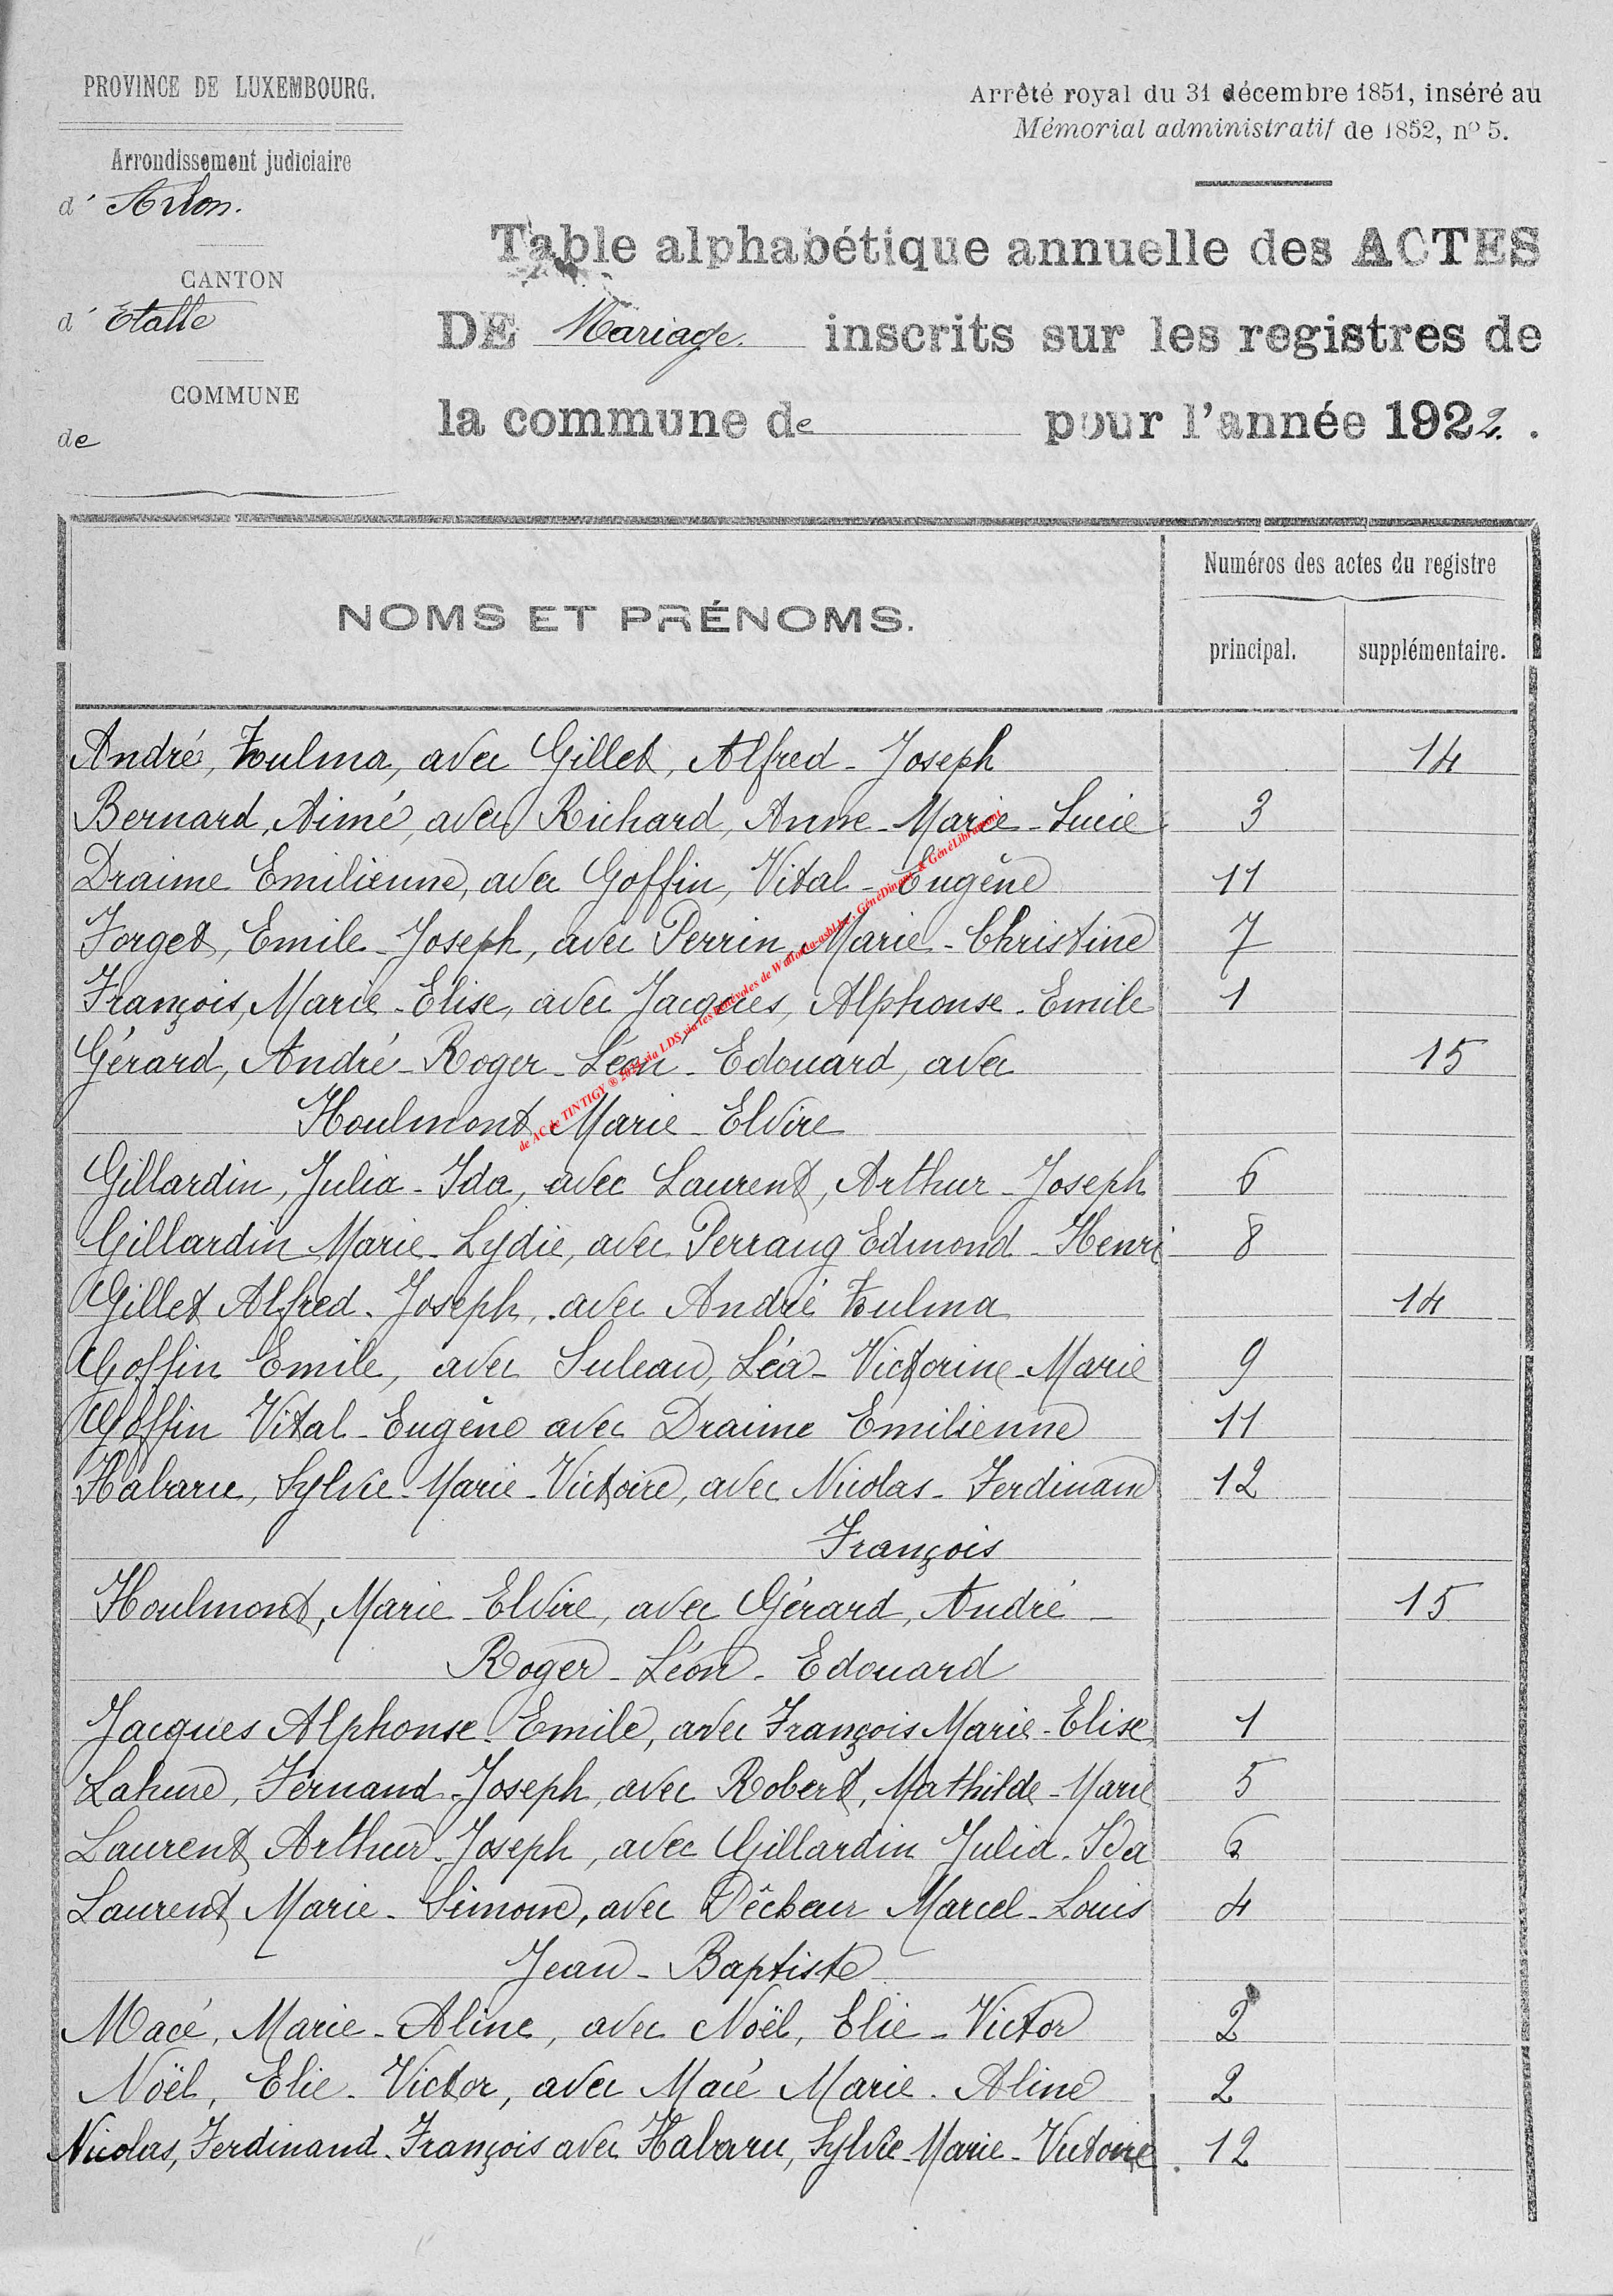 PROVINCE DE LUXEMBOURG.
Arrondissement judiciaire
d' Arlon.
CANTON
d' Etalle
COMMUNE
de
Arrêté royal du 31 décembre 1851, inséré au
Mémorial administratif de 1852, nº 5.
Table alphabétique annuelle des ACTES
DE Mariage. inscrits sur les registres de
la commune de pour l'année 1922.
NOMS ET PRÉNOMS.
Numéros des actes du registre
principal. supplémentaire.
André, Zulma, avec Gillet, Alfred-Joseph 14
Bernard, Aimé, avec Richard, Anne-Marie-Lucie 3
Draime Emilienne, avec Goffin, Vital-Eugène 11
Forget, Emile-Joseph, avec Perrin, Marie-Christine 7
François, Marie-Elise, avec Jacques, Alphonse-Emile 1
Gérard, André-Roger-Léon-Edouard, avec 15
Houlmont Marie-Elvire
Gillardin, Julia-Ida, avec Laurent, Arthur-Joseph 6
Gillardin Marie-Lydie, avec Perrang Edmond-Henri 8
Gillet Alfred-Joseph, avec André Zulma 14
Goffin Emile, avec Suleau, Léa-Victorine-Marie 9
Goffin Vital-Eugène avec Draime Emilienne 11
Habaru, Sylvie-Marie-Victoire, avec Nicolas-Ferdinand 12
François
Houlmont, Marie-Elvire, avec Gérard, André- 15
Roger-Léon-Edouard
Jacques Alphonse-Emile, avec François Marie-Elise 1
Lahure, Fernand-Joseph, avec Robert, Mathilde-Marie 5
Laurent Arthur-Joseph, avec Gillardin Julia-Ida 6
Laurent Marie-Simone, avec Marcel-Louis 4
Jean-Baptiste
Macé, Marie-Aline, avec Noël, Elie-Victor 2
Noël, Elie-Victor, avec Macé Marie-Aline 2
Nicolas, Ferdinand-François avec Habaru, Sylvie-Marie-Victoire 12
de AC de TINTIGY ® 2024 via LDS via les bénévoles de Wallonia-asbl.be - GénéDinant & GénéLibramont